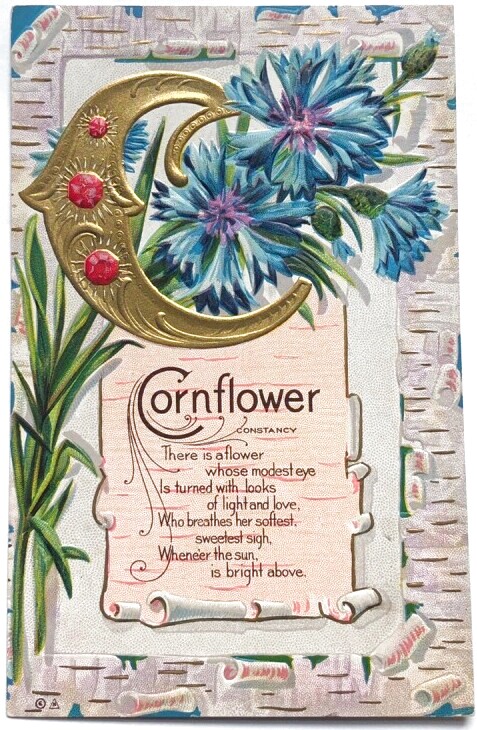 C
Cornflower
CONSTANCY
There is a flower
whose modest eye
Is turned with looks
of light and love,
Who breathes her softest,
sweetest sigh,
Whene'er the sun,
is bright above.
©